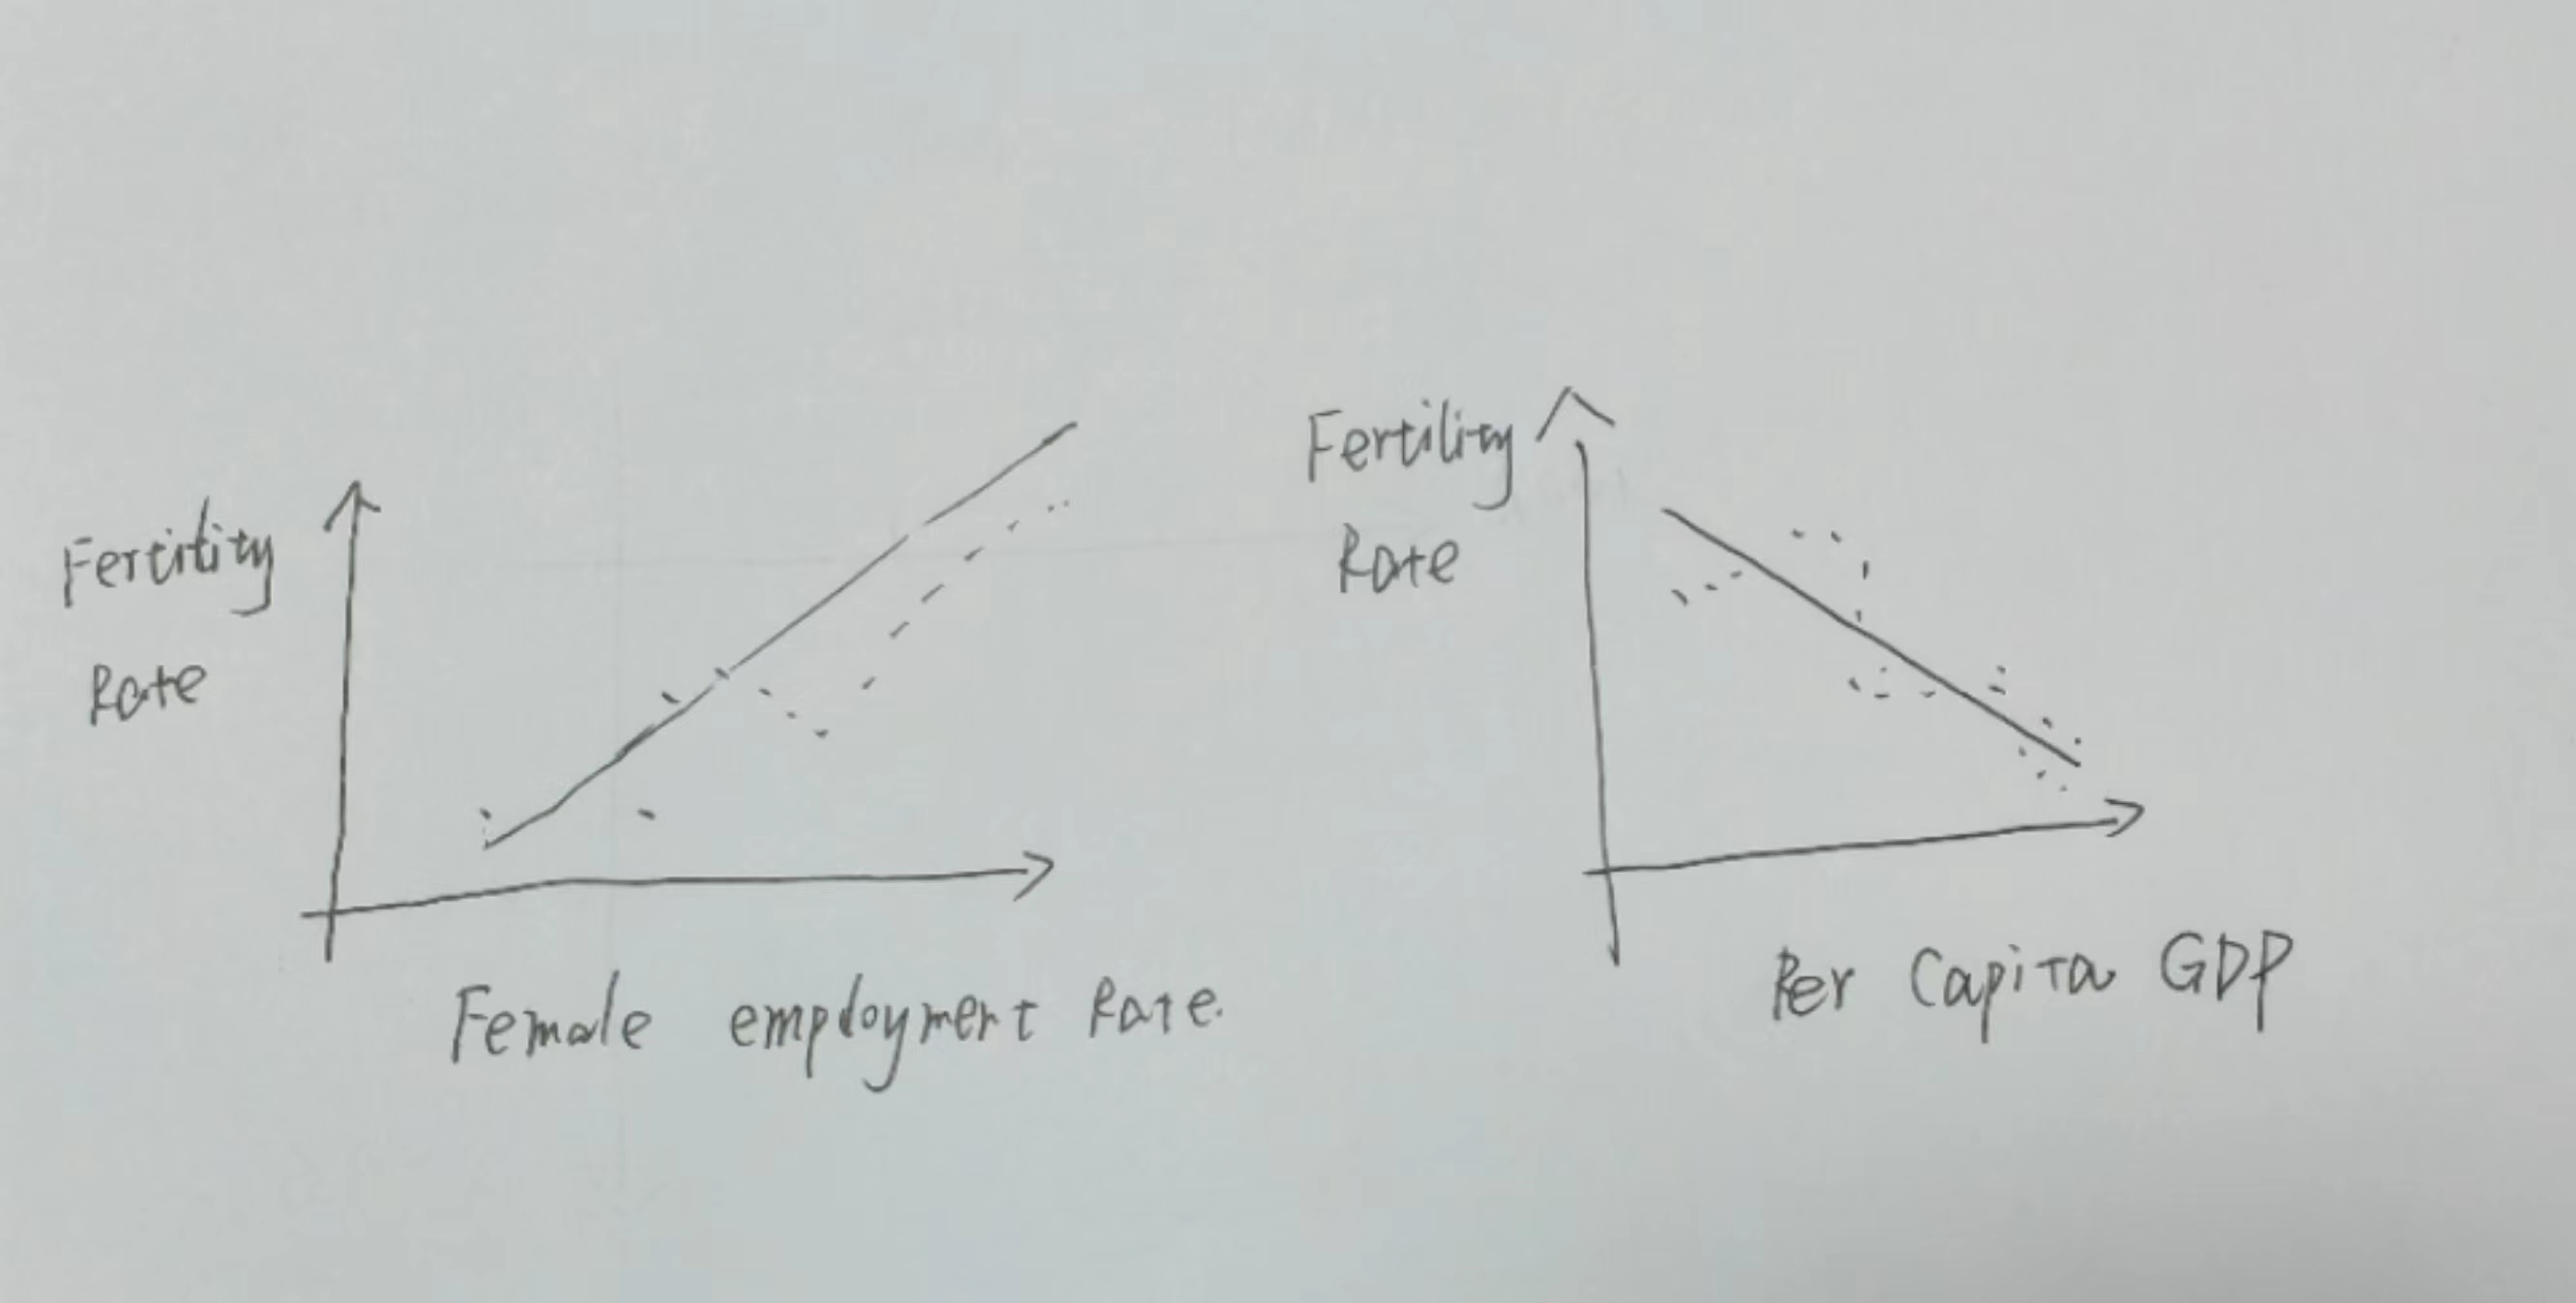 Fertility
Rate
Female employment Rate.
Fertility
Rate
Per Capita GDP